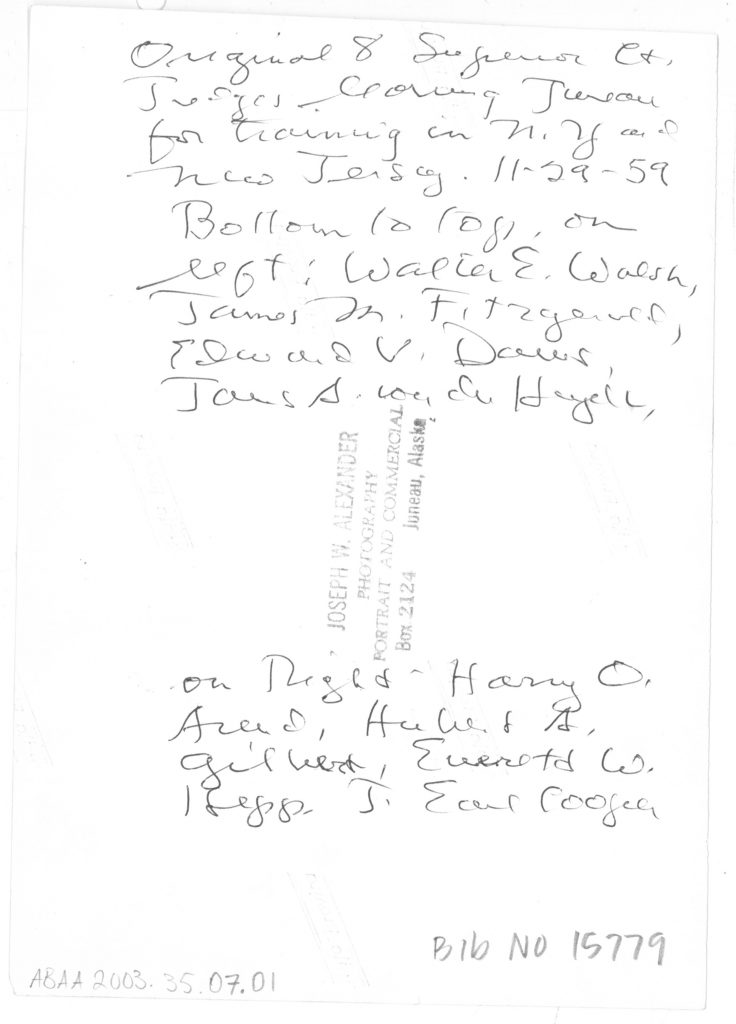 Original 8 Superior Ct.
Judges leaving Juneau
for training in N.Y and
New Jersey. 11-29-59
Bottom to top, on
left: Walter E. Walsh,
James M. Fitzgerald,
Edward V. Davis,
James A. von der Heydt,
JOSEPH W. ALEXANDER
PHOTOGRAPHY
PORTRAIT AND COMMERCIAL
Box 2124 Juneau, Alaska
on Right - Harry O.
Arend, Hubert A.
Gilbert, Everett W.
Hepp. J. Earl Cooper
Bib NO 15779
ABAA 2003.35.07.01